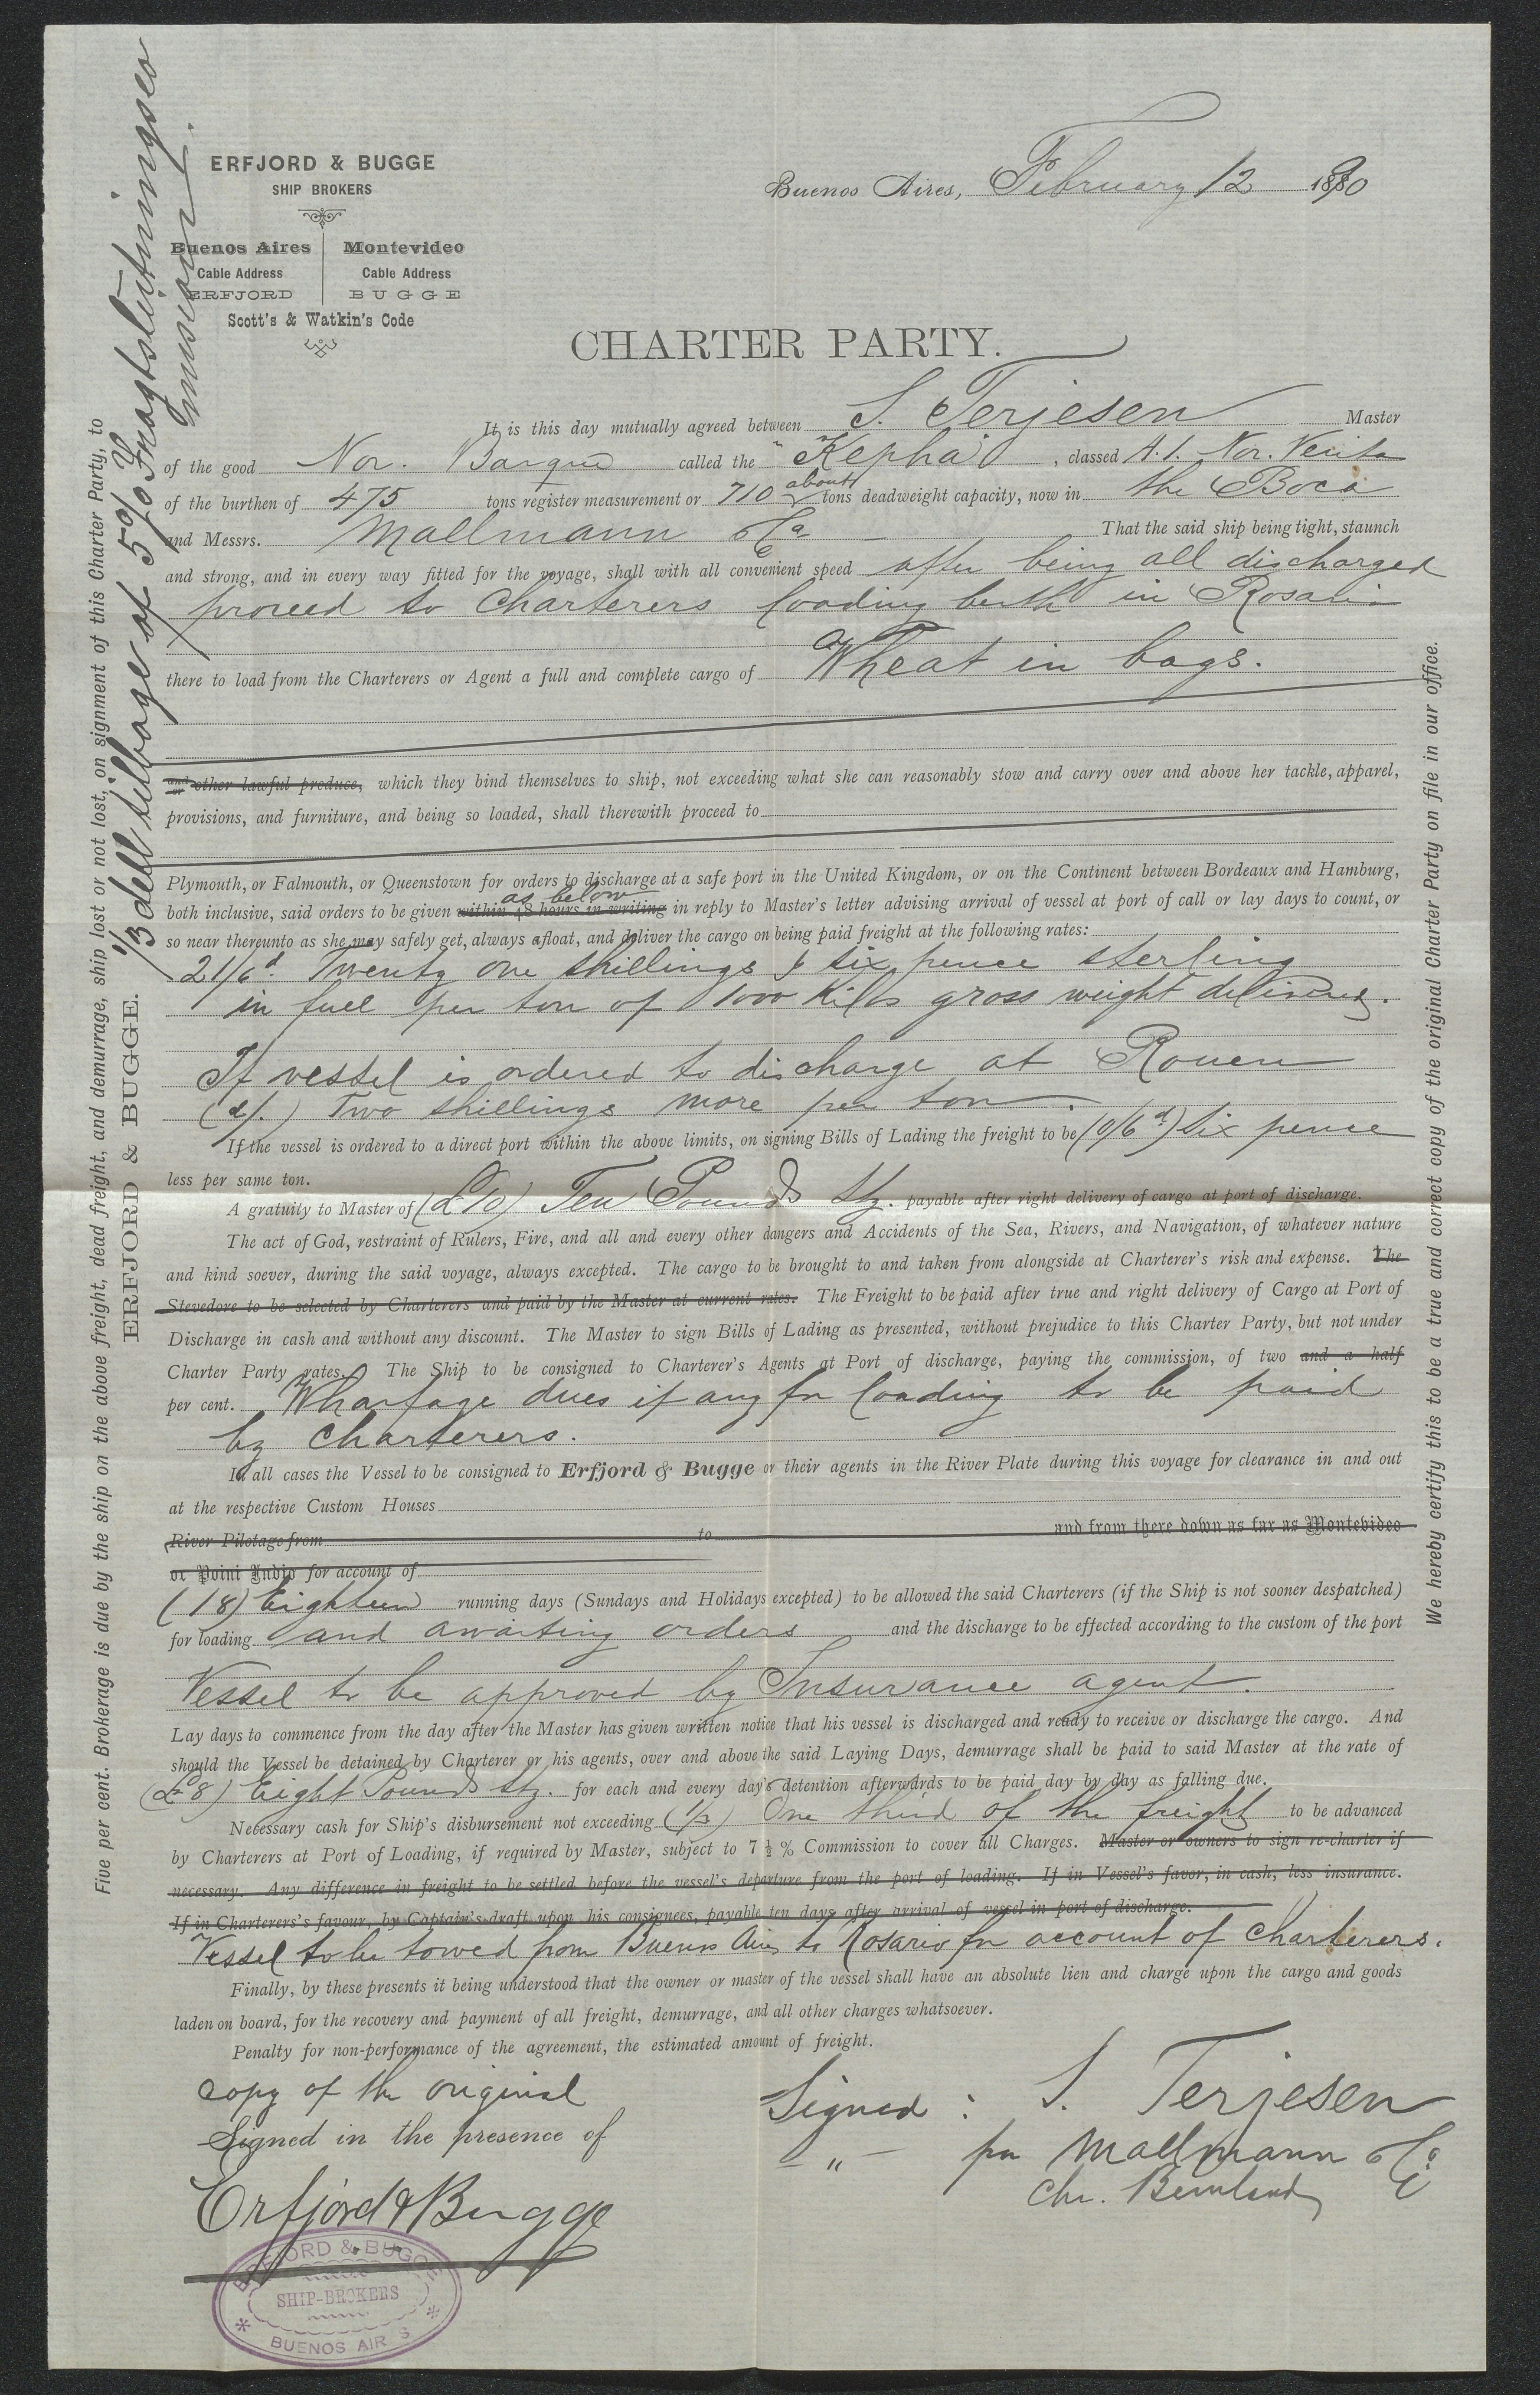 ERFJORD & BUGGE
SHIP BROKERS
Buenos Aires
Cable Address
ERFJORD
Montevideo
Cable Address
BUGGE
Scott's & Watkin's Code
Buenos Aires, February 12 1890
CHARTER PARTY.
It is this day mutually agreed between S. Terjesen Master
of the good Nor. Barque called the "Kepha" , classed A.1. Nor. Verita
of the burthen of 475 tons register measurement or 710 about tons deadweight capacity, now in the Boca
and Messrs. Mallmann & Co That the said ship being tight, staunch
and strong, and in every way fitted for the voyage, shall with all convenient speed after being all discharged
proceed to Charterers loading berth in Rosario
there to load from the Charterers or Agent a full and complete cargo of Wheat in bags.
and or other lawful produce, which they bind themselves to ship, not exceeding what she can reasonably stow and carry over and above her tackle, apparel,
provisions, and furniture, and being so loaded, shall therewith proceed to
Plymouth, or Falmouth, or Queenstown for orders to discharge at a safe port in the United Kingdom, or on the Continent between Bordeaux and Hamburg,
as below
both inclusive, said orders to be given within 48 hours in writing in reply to Master's letter advising arrival of vessel at port of call or lay days to count, or
so near thereunto as she may safely get, always afloat, and deliver the cargo on being paid freight at the following rates:
21/6d. Twenty one shillings & six pence sterling
in full per ton of 1000 Kilos gross weight delivered.
If vessel is ordered to discharge at Rouen
(2/.) Two shillings more per ton.
If the vessel is ordered to a direct port within the above limits, on signing Bills of Lading the freight to be (0/6d) six pence
less per same ton.
A gratuity to Master of (£10) Ten Pounds Stg. payable after right delivery of cargo at port of discharge.
The act of God, restraint of Rulers, Fire, and all and every other dangers and Accidents of the Sea, Rivers, and Navigation, of whatever nature
and kind soever, during the said voyage, always excepted. The cargo to be brought to and taken from alongside at Charterer's risk and expense. The
Stevedore to be selected by Charterers and paid by the Master at current rates. The Freight to be paid after true and right delivery of Cargo at Port of
Discharge in cash and without any discount. The Master to sign Bills of Lading as presented, without prejudice to this Charter Party, but not under
Charter Party rates. The Ship to be consigned to Charterer's Agents at Port of discharge, paying the commission, of two and a half
per cent. Wharfage dues if any for loading to be paid
by Charterers.
In all cases the Vessel to be consigned to Erfjord & Bugge or their agents in the River Plate during this voyage for clearance in and out
at the respective Custom Houses
River Pilotage from to and from there down as far as Montevideo
or Point Indio for account of
(18) Eighteen running days (Sundays and Holidays excepted) to be allowed the said Charterers (if the Ship is not sooner despatched)
for loading and awaiting orders and the discharge to be effected according to the custom of the port
Vessel to be approved by Insurance agent.
Lay days to commence from the day after the Master has given written notice that his vessel is discharged and ready to receive or discharge the cargo. And
should the Vessel be detained by Charterer or his agents, over and above the said Laying Days, demurrage shall be paid to said Master at the rate of
(£8) Eight Pounds Stg. for each and every day's detention afterwards to be paid day by day as falling due.
Necessary cash for Ship's disbursement not exceeding (1/3) One third of the freight to be advanced
by Charterers at Port of Loading, if required by Master, subject to 7 ½ % Commission to cover all Charges. Master or owners to sign re-charter if
necessary. Any difference in freight to be settled before the vessel's departure from the port of loading. If in Vessel's favor, in cash, less insurance.
If in Charterers's favour, by Captain's draft upon his consignees, payable ten days after arrival of vessel in port of discharge.
Vessel to be towed from Buenos Aires to Rosario for account of Charterers.
Finally, by these presents it being understood that the owner or master of the vessel shall have an absolute lien and charge upon the cargo and goods
laden on board, for the recovery and payment of all freight, demurrage, and all other charges whatsoever.
Penalty for non-performance of the agreement, the estimated amount of freight.
copy of the original
Signed in the presence of
Erfjord & Bugge
Signed : S. Terjesen
- " - per Mallmann & Co
Chr.
ERFJORD & BUGGE
SHIP-BROKERS
BUENOS AIRES
Five per cent. Brokerage is due by the ship on the above freight, dead freight, and demurrage, ship lost or not lost, on signment of this Charter Party, to
ERFJORD & BUGGE.
1/3 dell tilbage of 5% Fragtslutnings
We hereby certify this to be a true and correct copy of the original Charter Party on file in our office.